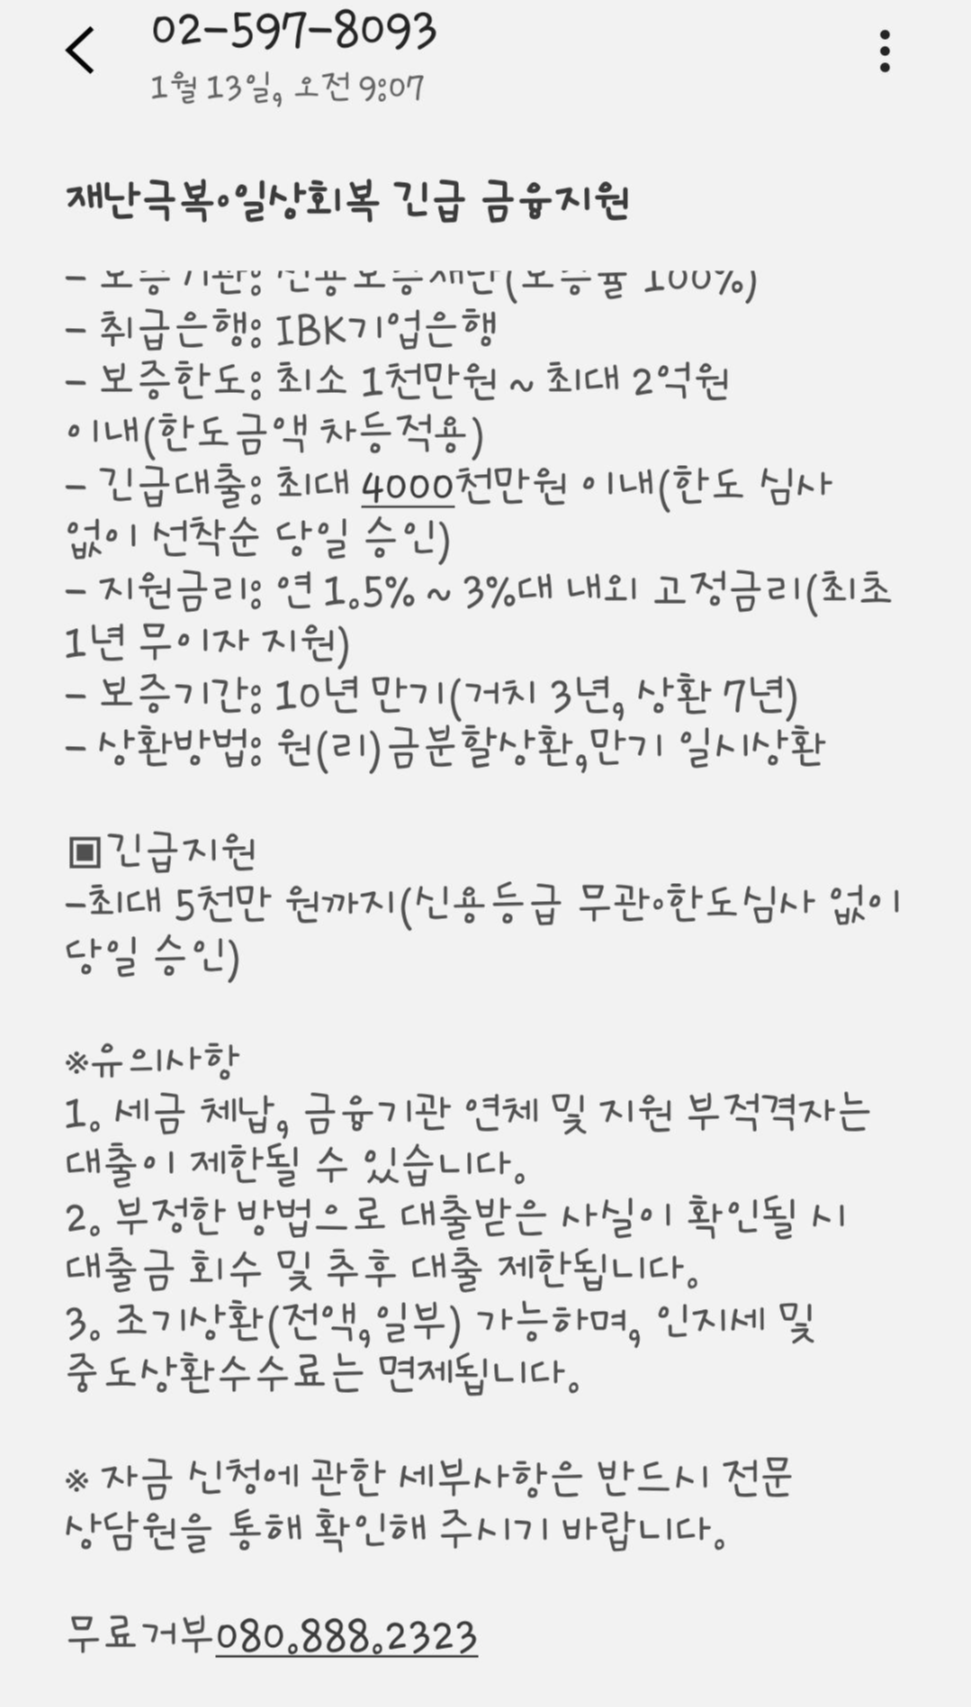 02-597-8093
1월 13일, 오전 9:07
재난극복·일상회복 긴급 금융지원
- 보증기관: 신용보증재단(보증율 100%)
- 취급은행: IBK기업은행
- 보증한도: 최소 1천만원 ~ 최대 2억원
이내(한도금액 차등적용)
- 긴급대출: 최대 4000천만원 이내(한도 심사
없이 선착순 당일 승인)
- 지원금리: 연 1.5% ~ 3%대 내외 고정금리(최초
1년 무이자 지원)
- 보증기간: 10년 만기(거치 3년, 상환 7년)
- 상환방법: 원(리)금분할상환,만기 일시상환
▣긴급지원
-최대 5천만 원까지(신용등급 무관·한도심사 없이
당일 승인)
※유의사항
1. 세금 체납, 금융기관 연체 및 지원 부적격자는
대출이 제한될 수 있습니다.
2. 부정한 방법으로 대출받은 사실이 확인될 시
대출금 회수 및 추후 대출 제한됩니다.
3. 조기상환(전액,일부) 가능하며, 인지세 및
중도상환수수료는 면제됩니다.
※ 자금 신청에 관한 세부사항은 반드시 전문
상담원을 통해 확인해 주시기 바랍니다.
무료거부080.888.2323